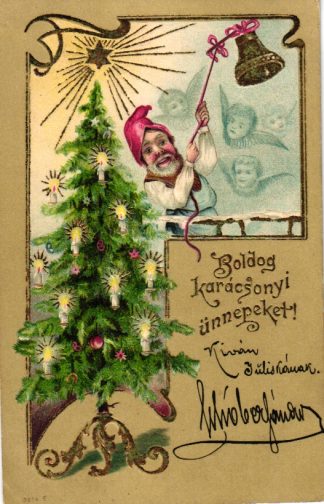 Boldog
karácsonyi
ünnepeket!
Kiván
Juliskának.